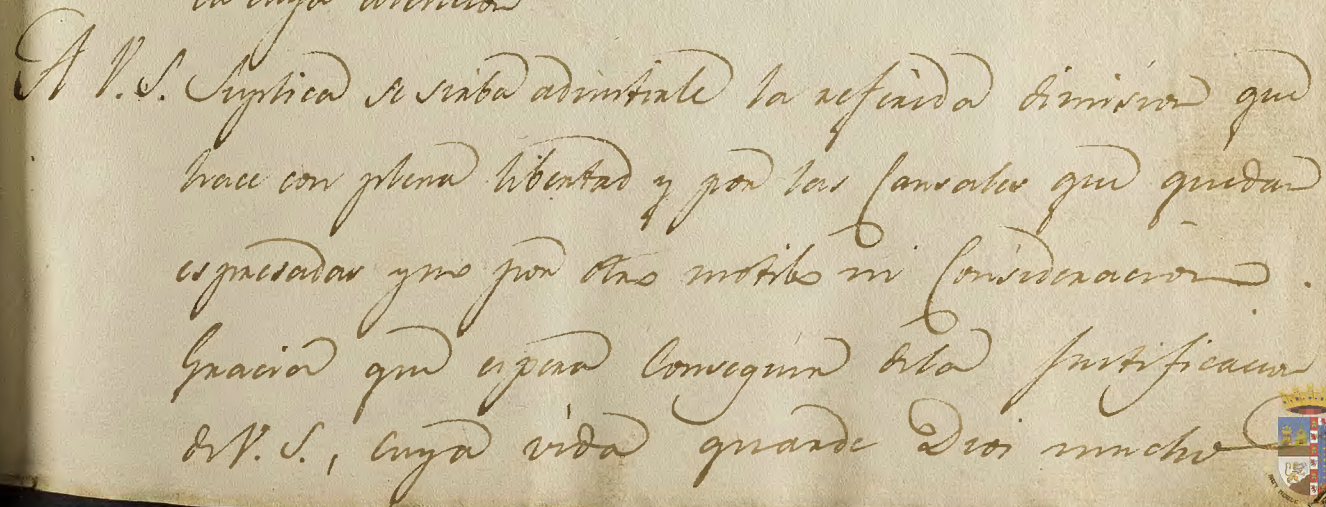 en cuya atencion
A V. S. Suplica se sirba admitirle la referida dimision que
hace con plena libertad y por las Causales que quedan
espresadas y no por otro motibo ni Consideracion.
Gracia que espera Conseguir dela Justificacion
de V. S., cuya vida guarde Dios mucho